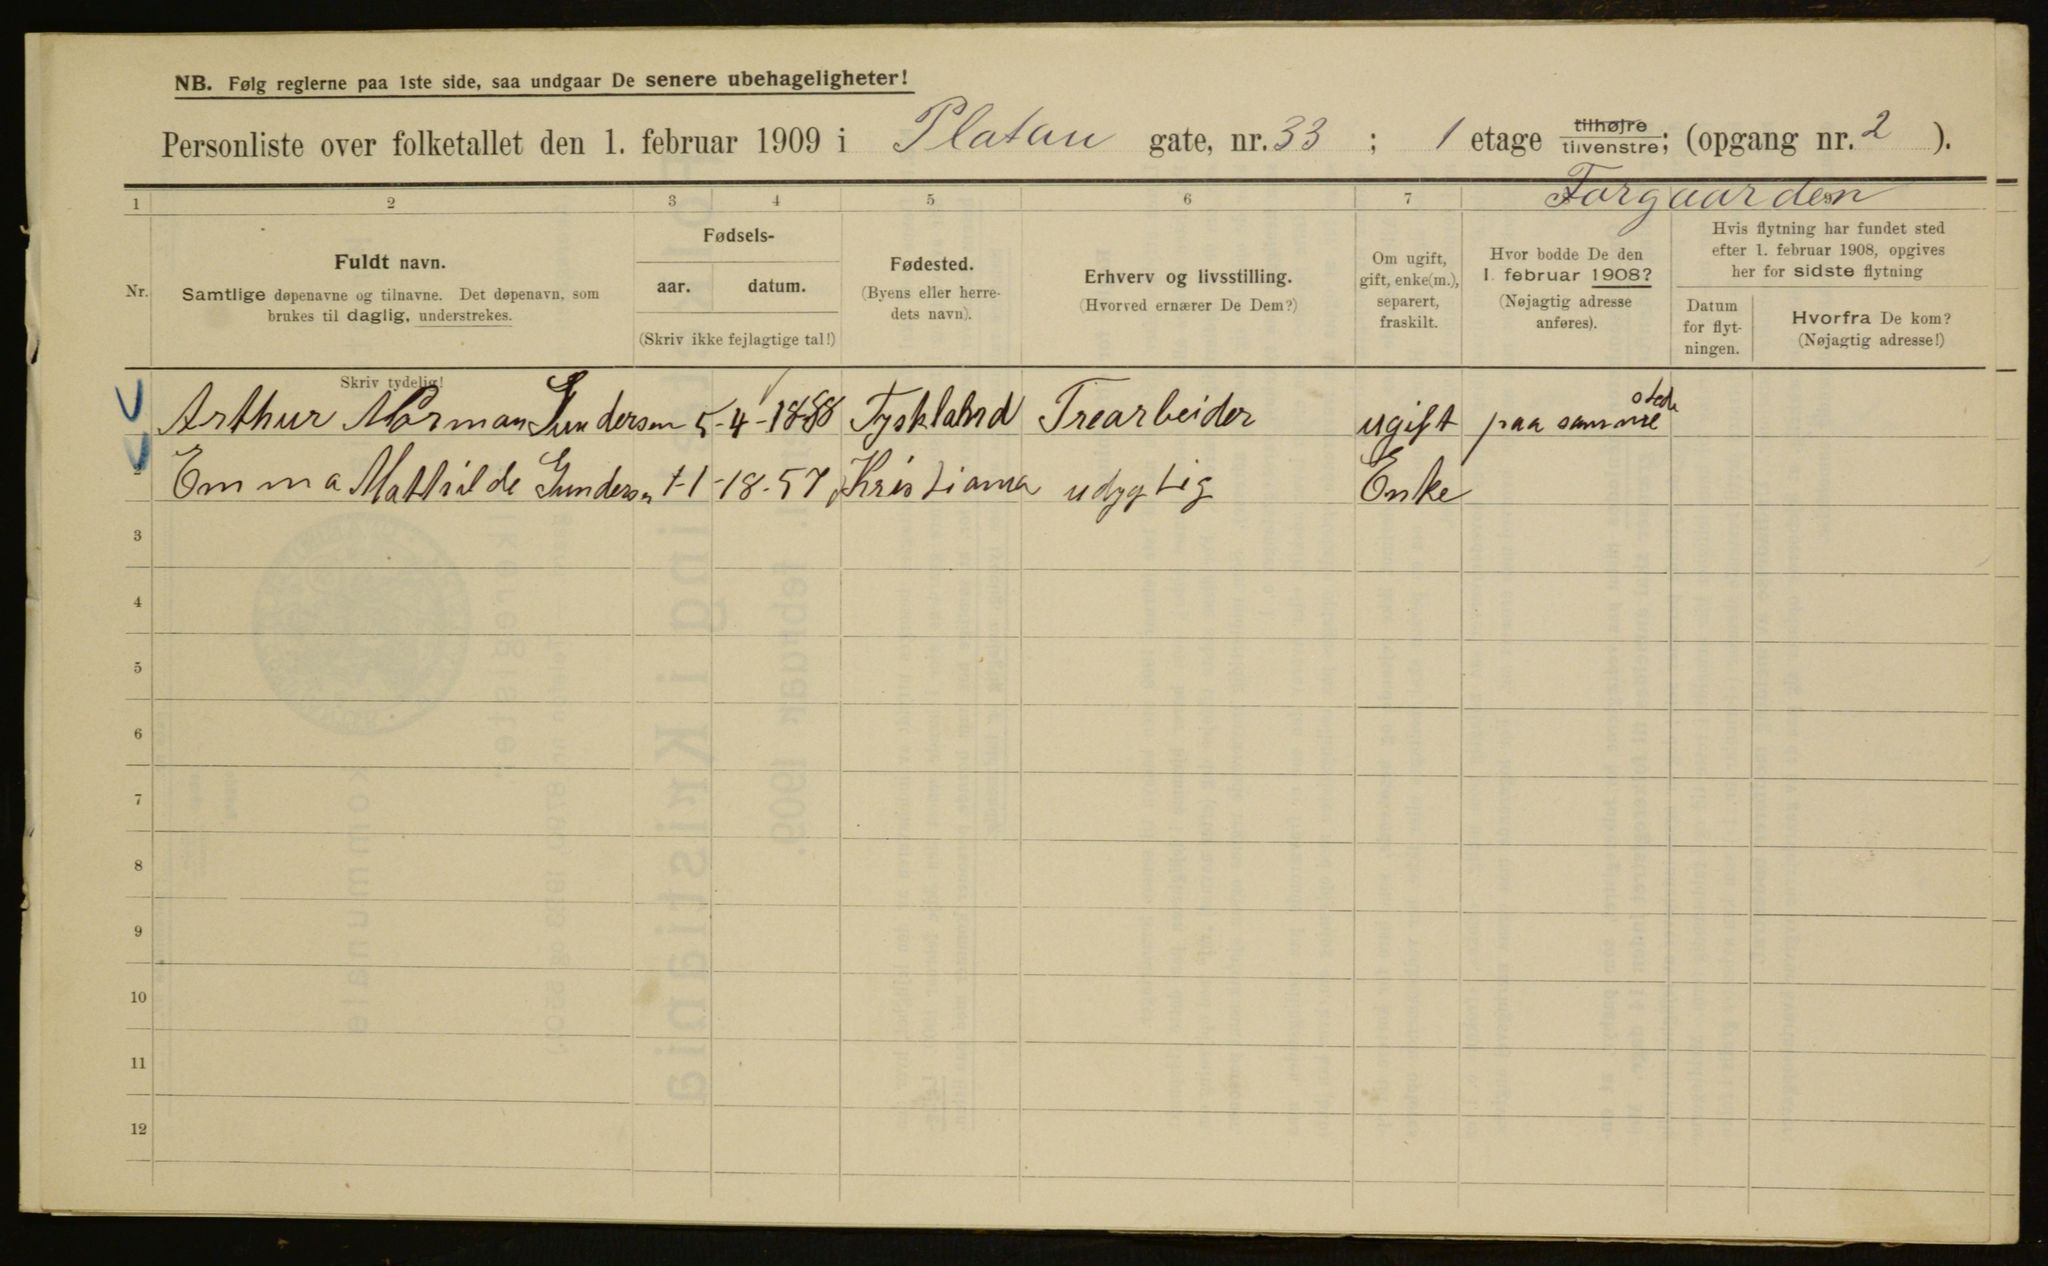 NB. Følg reglerne paa 1ste side, saa undgaar De senere ubehageligheter!
Personliste over folketallet den 1. februar 1909 i Platau gate, nr. 33 ; 1 etage tilhøjre tilvenstre; (opgang nr. 2 ).
Forgaarden
1 2 3 4 5 6 7 8 9
Nr. Fuldt navn. Samtlige døpenavne og tilnavne. Det døpenavn, som brukes til daglig, understrekes.
Fødsels-
aar. datum.
(Skriv ikke fejlagtige tal!)
Fødested.
(Byens eller herre-
dets navn).
Erhverv og livsstilling.
(Hvorved ernærer De Dem?)
Om ugift,
gift, enke(m.),
separert,
fraskilt.
Hvor bodde De den
1. februar 1908?
(Nøjagtig adresse
anføres).
Hvis flytning har fundet sted
efter 1. februar 1908, opgives
her for sidste flytning
Datum
for flyt-
ningen.
Hvorfra De kom?
(Nøjagtig adresse!)
Skriv tydelig!
Arthur Norman Gundersen 5-4-1888 Tyskland Trearbeider ugift paa samme sted
2 Emma Mathilde Gundersen 1-18-57 Kristiania udygtig Enke
3
4
5
6
7
8
9
10
11
12